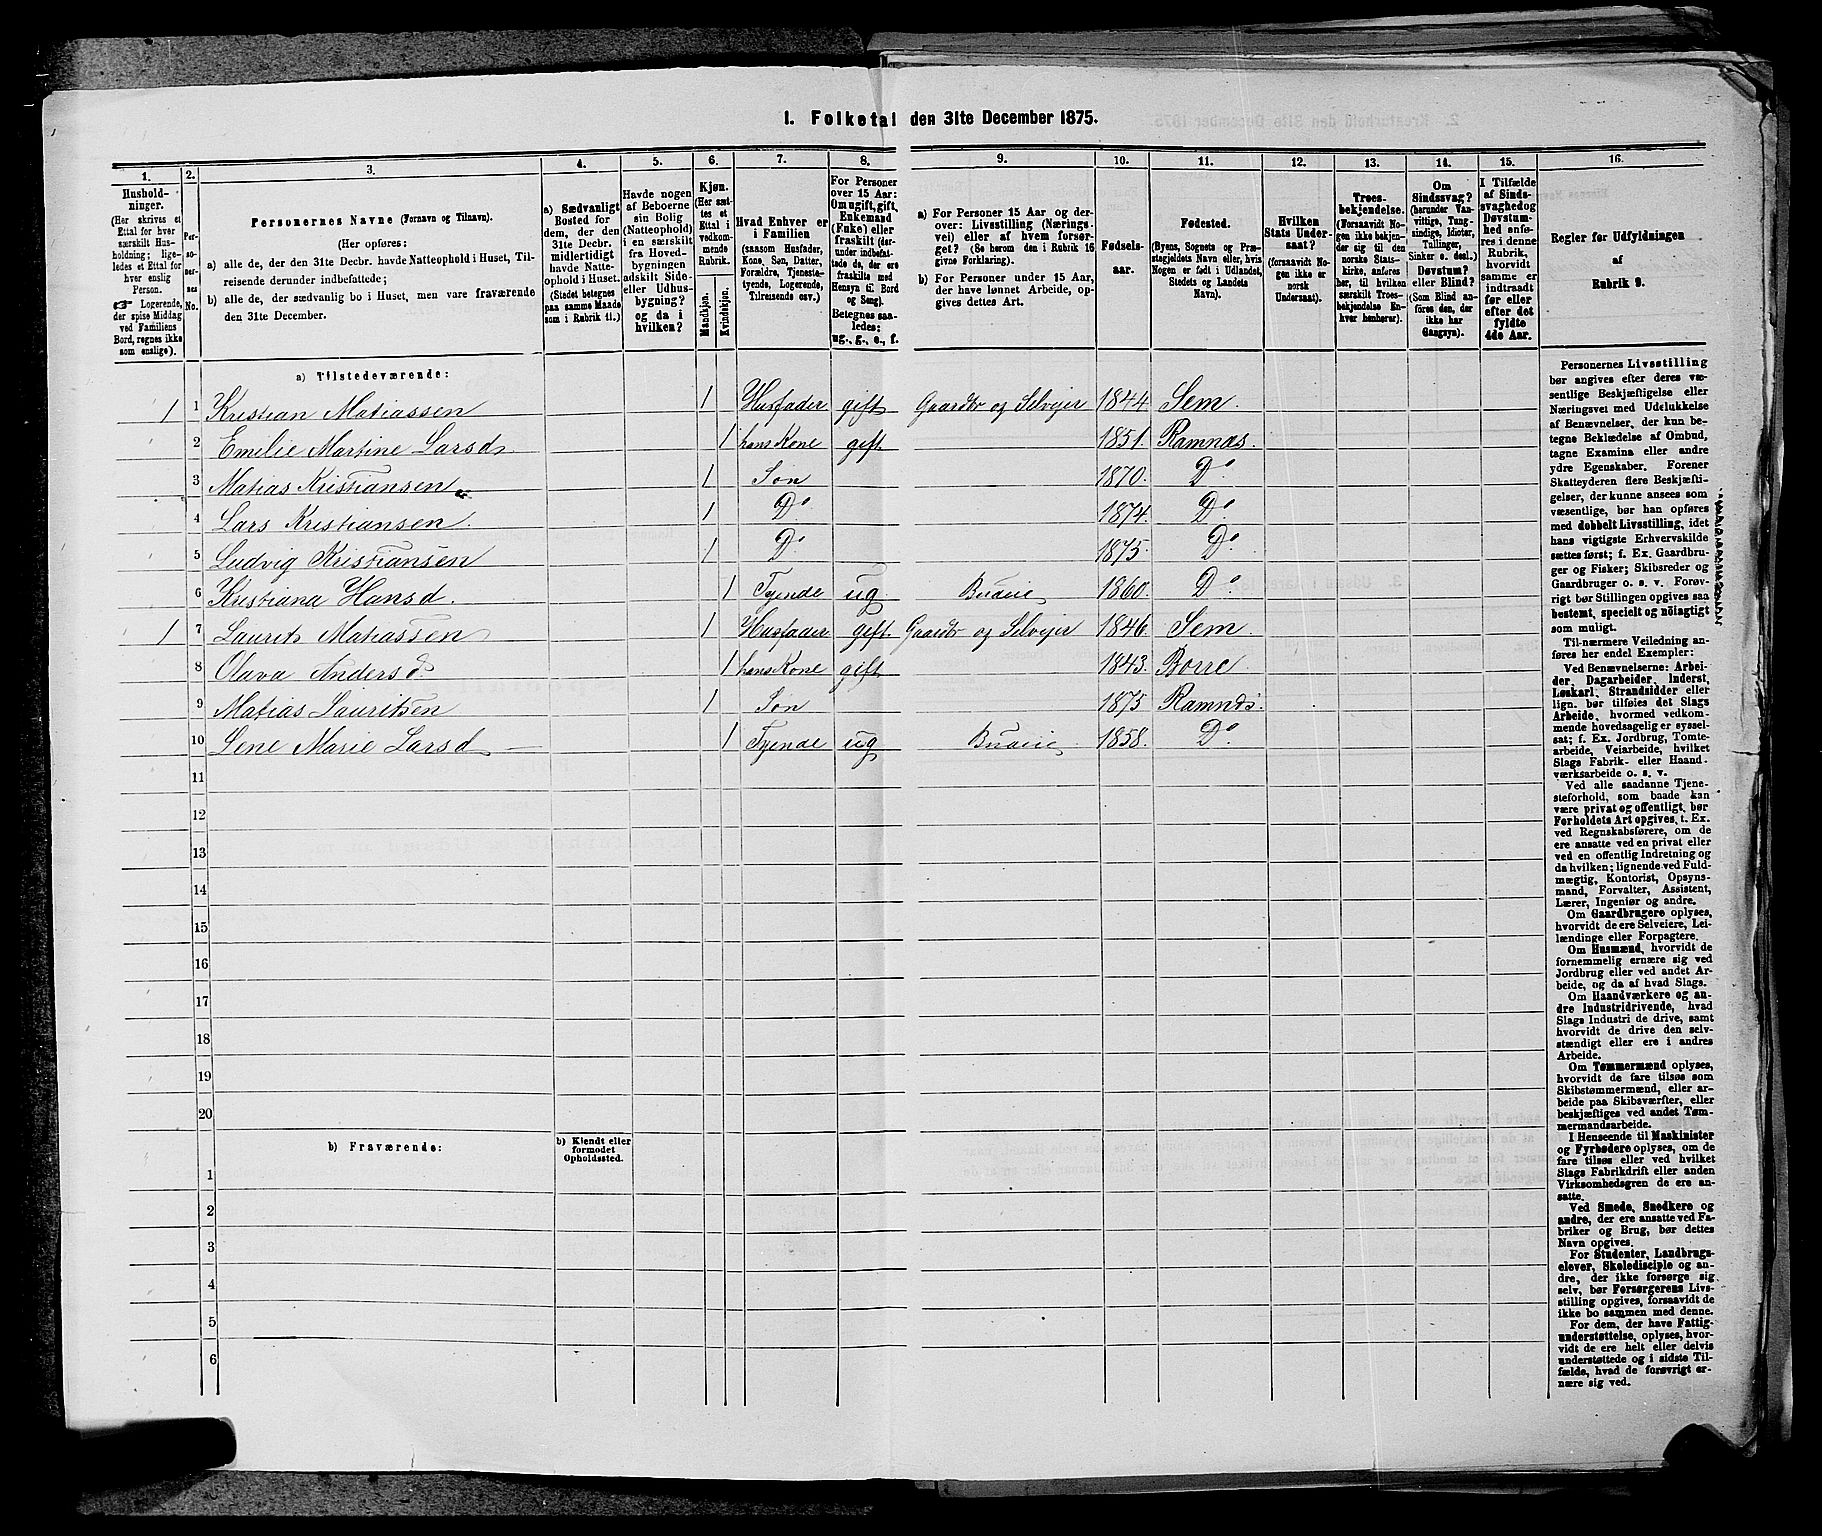 1. Folketal den 31te December 1875.
1. 2. 3. 4. 5. 6. 7. 8. 9. 10. 11. 12. 13. 14. 15. 16.
Hushold-
ninger.
(Her skrives et
Ettal for hver
særskilt Hus-
holdning; lige-
ledes et Ettal for
hver enslig
Person.
☞ Logerende,
der spise Middag
ved Familiens
Bord, regnes ikke
som enslige).
Per-
so-
ner-
nes
No.
Personernes Navne (Fornavn og Tilnavn).
(Her opføres:
a) alle de, der den 31te Decbr. havde Natteophold i Huset, Til-
reisende derunder indbefattede;
b) alle de, der sædvanlig bo i Huset, men vare fraværende
den 31te December.
a) Sædvanligt
Bosted for
dem, der den
31te Decbr.
midlertidigt
havde Natte-
ophold i Huset.
(Stedet betegnes
paa samme Maade
som i Rubrik 11.)
Havde nogen
af Beboerne
sin Bolig
(Natteophold)
i en særskilt
fra Hoved-
bygningen
adskilt Side-
eller Udhus-
bygning?
og da i
hvilken?
Kjøn.
(Her sæt-
tes et
Ettal i
vedkom-
mende
Rubrik.
Mandkjøn.
Kvindekjøn.
Hvad Enhver er
i Familien
(saasom Husfader,
Kone, Søn, Datter,
Forældre, Tjeneste-
tyende, Logerende,
Tilreisende osv.)
For Personer
over 15 Aar:
Om ugift, gift,
Enkemand
(Enke) eller
fraskilt (der-
under indbefat-
tede de, der ere
fraskilte med
Hensyn til Bord
og Seng).
Betegnes saa-
ledes:
ug., g., e., f.
a) For Personer 15 Aar og der-
over: Livsstilling (Nærings-
vei) eller af hvem forsør-
get? (Se herom den i Rubrik 16
givne Forklaring).
b) For Personer under 15 Aar,
der have lønnet Arbeide, op-
gives dettes Art.
Fødsels-
aar.
Fødested.
(Byens, Sognets og Præ-
stegjeldets Navn eller, hvis
Nogen er født i Udlandet,
Stedets og Landets
Navn).
Hvilken
Stats Under-
saat?
(forsaavidt No-
gen ikke er
norsk
Undersaat).
Troes-
bekjendelse.
(Forsaavidt No-
gen ikke bekjen-
der sig til den
norske Stats-
kirke, anføres
her, til hvilken
særskilt Troes-
bekjendelse En-
hver henhører).
Om
Sindssvag?
(herunder Van-
vittige, Tung-
sindige, Idioter,
Tullinger,
Sinker o. desl.)
Døvstum?
eller Blind?
(Som Blind an-
føres den, der
ikke har
Gangsyn).
I Tilfælde
af Sinds-
svaghed og
Døvstum-
hed anfø-
res i denne
Rubrik,
hvorvidt
samme er
indtraadt
før eller
efter det
fyldte
4de Aar.
Regler for Udfyldningen
af
Rubrik 9.
a) Tilstedeværende:
1 1 Kristian Matiassen 1 Husfader gift Gaardbr og Selvejer 1844. Sem.
2 Emilie Martine Larsd. 1 hans Kone gift 1851. Ramnæs.
3 Matias Kristiansen 1 Søn 1870. Do.
4 Lars Kristiansen. 1 Do. 1874. Do.
5 Ludvig Kristiansen 1 Do. 1875. Do.
6 Kristiana Hansd. 1 Tyende ug Budeie 1860. Do.
1 7 Laurits Matiassen 1 Husfader gift. Gaardbr og Selvejer 1846. Sem.
8 Olava Andersd. 1 hans Kone gift 1843. Borre.
9 Matias Lauritsen 1 Søn 1875 Ramnæs.
10 Lene Marie Larsd 1 Tyende ug Budeie 1858. Do.
11
12
13
14
15
16
17
18
19
20
b) Fraværende:
b) Kjendt eller
formodet
Opholdssted.
1
2
3
4
5
6
Personernes Livsstilling
bør angives efter deres væ-
sentlige Beskjæftigelse eller
Næringsvei med Udelukkelse
af Benævnelser, der kun be-
tegne Beklædelse af Ombud,
tagne Examina eller andre
ydre Egenskaber. Forener
Skatteyderen flere Beskjæfti-
gelser, der kunne ansees som
væsentlige, bør han opføres
med dobbelt Livsstilling, idet
hans vigtigste Erhvervskilde
sættes først; f. Ex. Gaardbru-
ger og Fisker; Skibsreder og
Gaardbruger o. s. v. Forøv-
rigt bør Stillingen opgives saa
bestemt, specielt og nöiagtigt
som muligt.
Til nærmere Veiledning an-
føres her endel Exempler:
Ved Benævnelserne: Arbei-
der, Dagarbeider, Inderst,
Løskarl, Strandsidder eller
lign. bør tilføies det Slags
Arbeide, hvormed vedkom-
mende hovedsagelig er syssel-
sat; f. Ex. Jordbrug, Tomte-
arbeide, Veiarbeide, hvilket
Slags Fabrik- eller Haand-
værksarbeide o. s. v.
Ved alle saadanne Tjene-
steforhold, som baade kan
være privat og offentligt, bør
Forholdets Art opgives, t. Ex.
ved Regnskabsførere, om de
ere ansatte ved en privat eller
ved en offentlig Indretning og
da hvilken; lignende ved Fuld-
mægtig, Kontorist, Opsyns-
mand, Forvalter, Assistent,
Lærer, Ingeniør og andre.
Om Gaardbrugere oplyses,
hvorvidt de ere Selveiere, Lei-
lændinge eller Forpagtere.
Om Husmænd, hvorvidt de
fornemmelig ernære sig ved
Jordbrug eller ved andet Ar-
beide, og da af hvad Slags.
Om Haandværkere og an-
dre Industridrivende, hvad
Slags Industri de drive, samt
hvorvidt de drive den selv-
stændigt eller ere i andres
Arbeide.
Om Tømmermænd oplyses,
hvorvidt de fare tilsøs som
Skibstømmermænd, eller ar-
beide paa Skibsværfter, eller
beskjæftiges ved andet Tøm-
mermandsarbeide.
I Henseende til Maskinister
og Fyrbødere oplyses, om de
fare tilsøs eller ved hvilket
Slags Fabrikdrift eller anden
Virksomhedsgren de ere an-
satte.
Ved Smede, Snedkere og
andre, der ere ansatte ved Fa-
briker og Brug, bør dettes
Navn opgives.
For Studenter, Landbrugs-
elever, Skoledisciple og an-
dre, der ikke forsørge sig
selv, bør Forsørgerens Livs-
stilling opgives, forsaavidt de
ikke bo sammen med denne.
For dem, der have Fattig-
understøttelse, oplyses, hvor-
vidt de ere helt eller delvis
understøttede og i sidste Til-
fælde, hvad de forøvrigt er-
nære sig ved.